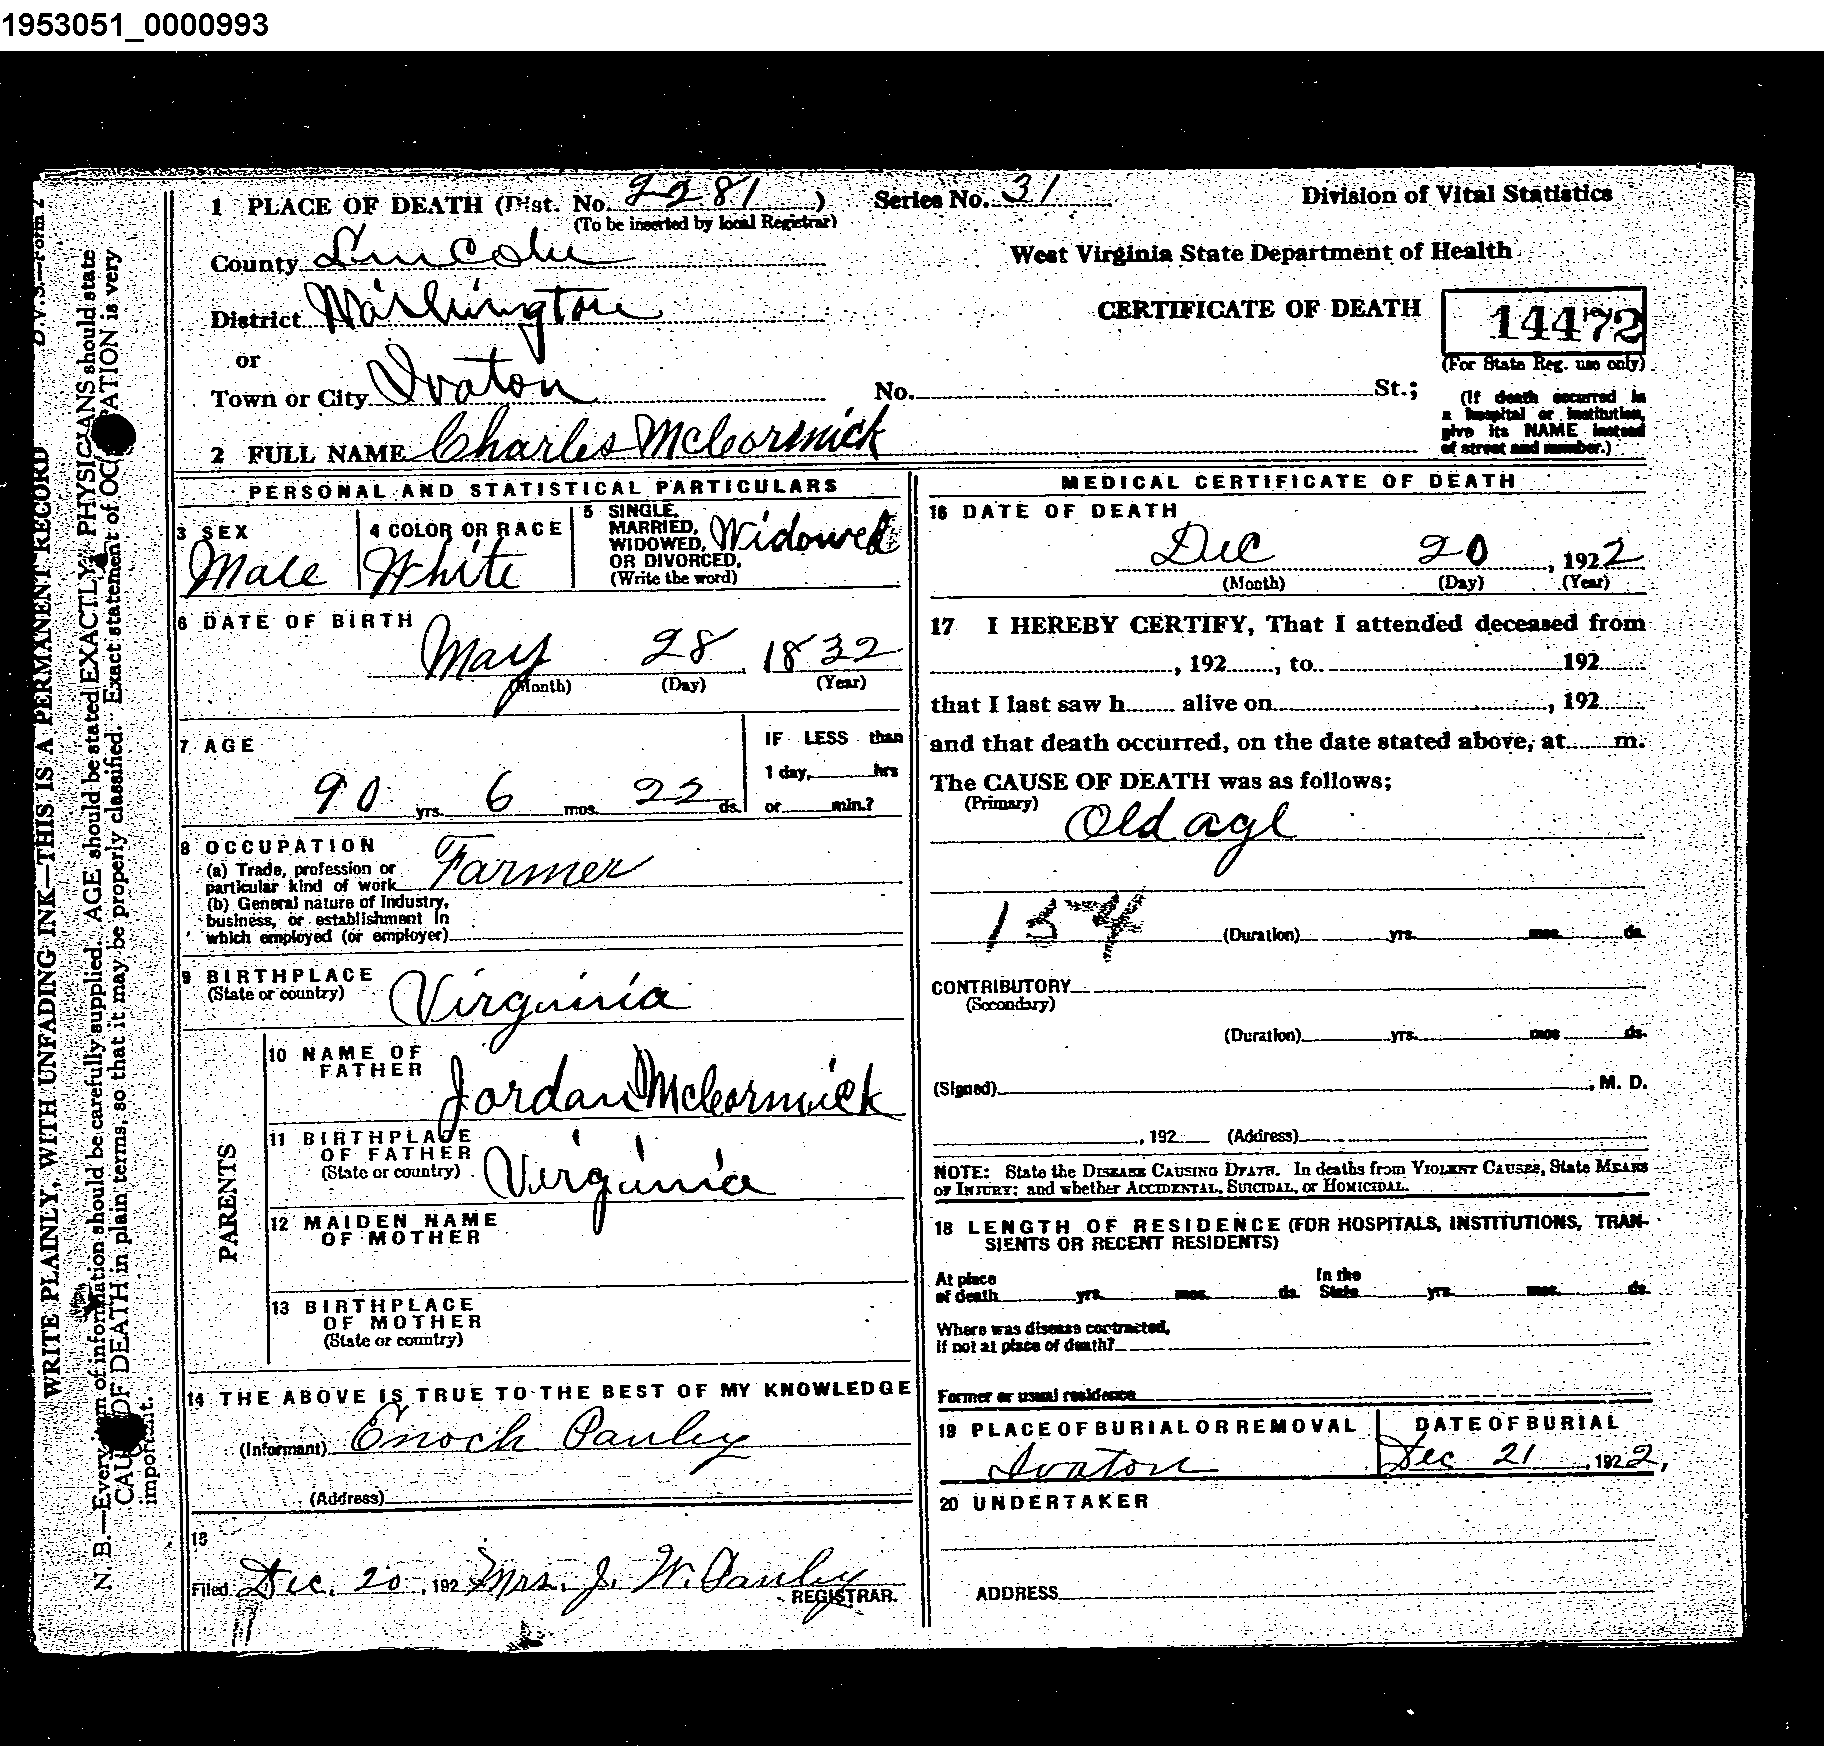 1953051_0000993
1 PLACE OF DEATH (Dist. No. 2281 )
(To be inserted by local Registrar)
Series No. 31
Division of Vital Statistics
County Lincoln
West Virginia State Department of Health
District Washington
CERTIFICATE OF DEATH
14472
(For State Reg. use only)
or
Town or City Ivaton
No. St.;
(If death occurred in
a hospital or institution,
give its NAME instead
of street and number.)
2 FULL NAME Charles McCormick
PERSONAL AND STATISTICAL PARTICULARS
3 SEX
Male
4 COLOR OR RACE
White
5 SINGLE,
MARRIED,
WIDOWED,
OR DIVORCED.
(Write the word)
Widowed
6 DATE OF BIRTH
May 28 1832
(Month) (Day) (Year)
7 AGE
90 yrs. 6 mos. 22 ds.
IF LESS than
1 day, hrs
or min.?
8 OCCUPATION
(a) Trade, profession or
particular kind of work Farmer
(b) General nature of Industry,
business, or establishment in
which employed (or employer)
9 BIRTHPLACE
(State or country) Virginia
PARENTS
10 NAME OF
FATHER
Jordan McCormick
11 BIRTHPLACE
OF FATHER
(State or country) Virginia
12 MAIDEN NAME
OF MOTHER
13 BIRTHPLACE
OF MOTHER
(State or country)
14 THE ABOVE IS TRUE TO THE BEST OF MY KNOWLEDGE
(Informant) Enoch Pauley
(Address)
15
Filed Dec. 20, 192 Mrs. J. W. Pauley
REGISTRAR.
MEDICAL CERTIFICATE OF DEATH
16 DATE OF DEATH
Dec 20, 1922
(Month) (Day) (Year)
17 I HEREBY CERTIFY, That I attended deceased from
, 192 , to 192
that I last saw h alive on , 192
and that death occurred, on the date stated above, at m.
The CAUSE OF DEATH was as follows;
(Primary)
Old age
154
(Duration) yrs. mos. ds.
CONTRIBUTORY
(Secondary)
(Duration) yrs. mos ds.
(Signed) , M. D.
, 192 (Address)
NOTE: State the DISEASE CAUSING DEATH. In deaths from VIOLENT CAUSES, State MEANS
OF INJURY; and whether ACCIDENTAL, SUICIDAL, or HOMICIDAL.
18 LENGTH OF RESIDENCE (FOR HOSPITALS, INSTITUTIONS, TRAN-
SIENTS OR RECENT RESIDENTS)
At place
of death yrs. mos. ds.
In the
State yrs. mos. ds.
Where was disease contracted,
If not at place of death?
Former or usual residence
19 PLACE OF BURIAL OR REMOVAL
Ivaton
DATE OF BURIAL
Dec 21, 1922,
20 UNDERTAKER
ADDRESS
D.V.S.—Form 2
WRITE PLAINLY, WITH UNFADING INK—THIS IS A PERMANENT RECORD
N. B.—Every item of information should be carefully supplied. AGE should be stated EXACTLY. PHYSICIANS should state
OF DEATH in plain terms, so that it may be properly classified. Exact statement of OCCUPATION is very
important.